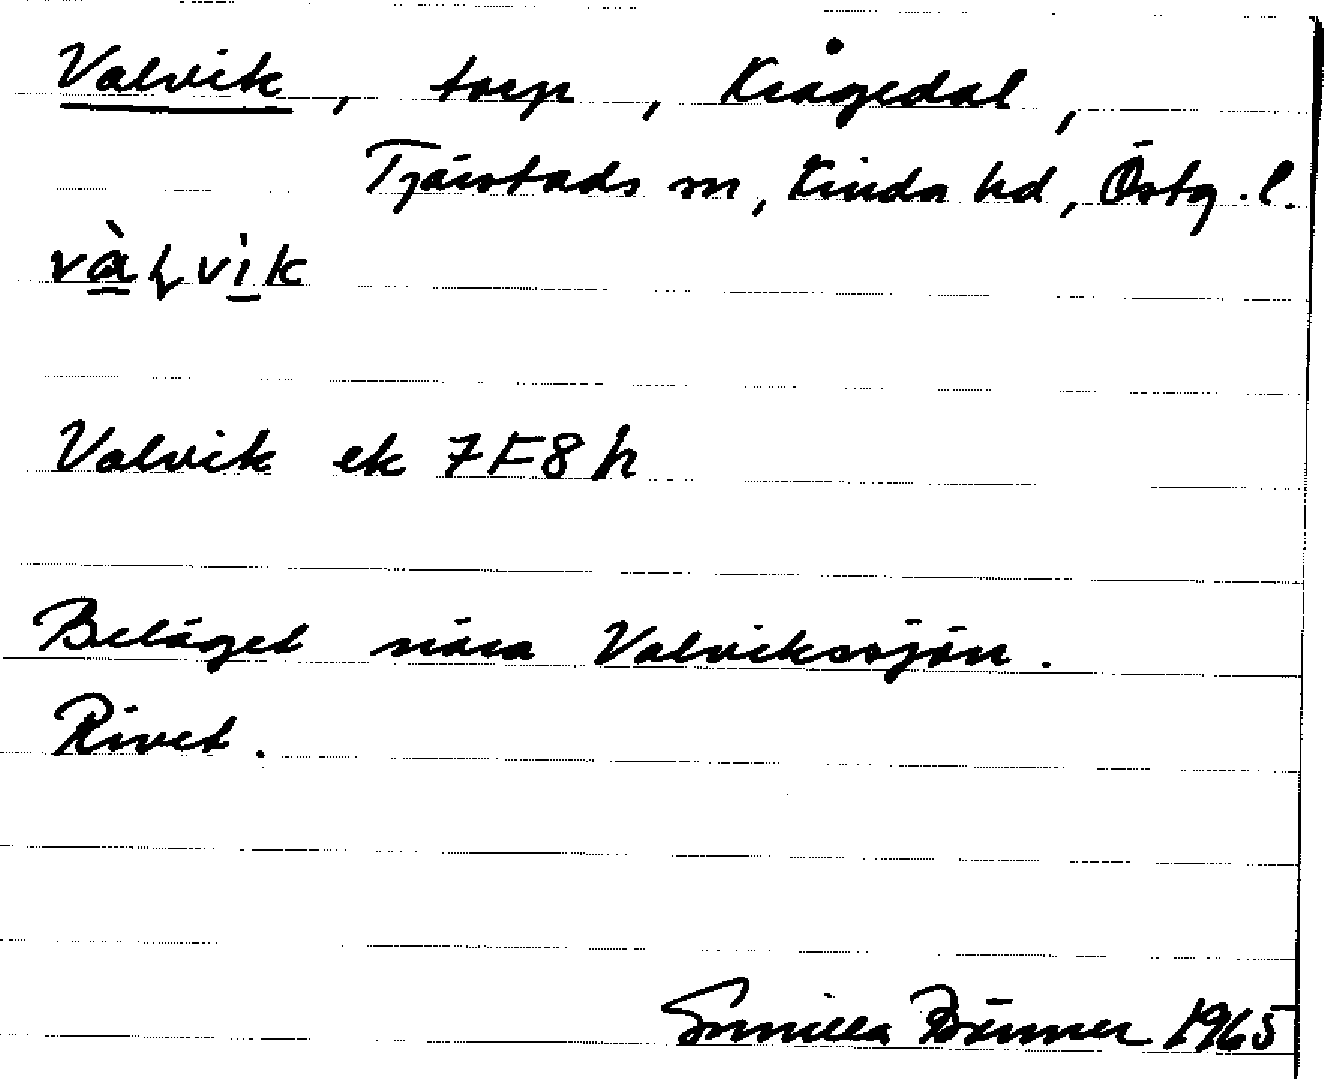 Valvik, torp, Krågedal,
Tjärstads sn, Kinda hd, Östg.l.
Valvik ek 7F8h
Beläget nära Valvikssjön.
Rivet.
Gunilla 1965